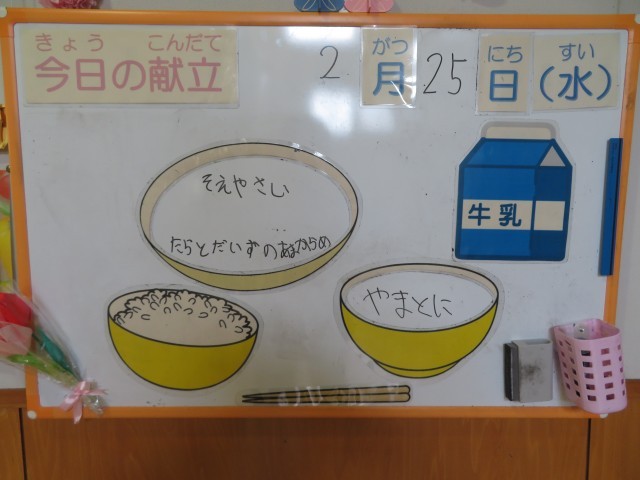 きょう こんだて
今日の献立
2 月 25 日 (水)
がつ にち すい
牛乳
そえやさい
たらとだいずのあまからめ
やまとに